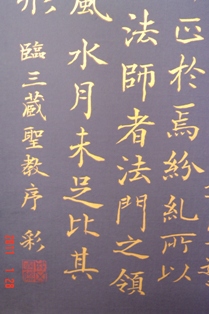 正於焉紛糺所以
法師者法門之領
風水月未足比其
臨三藏聖教序 彩